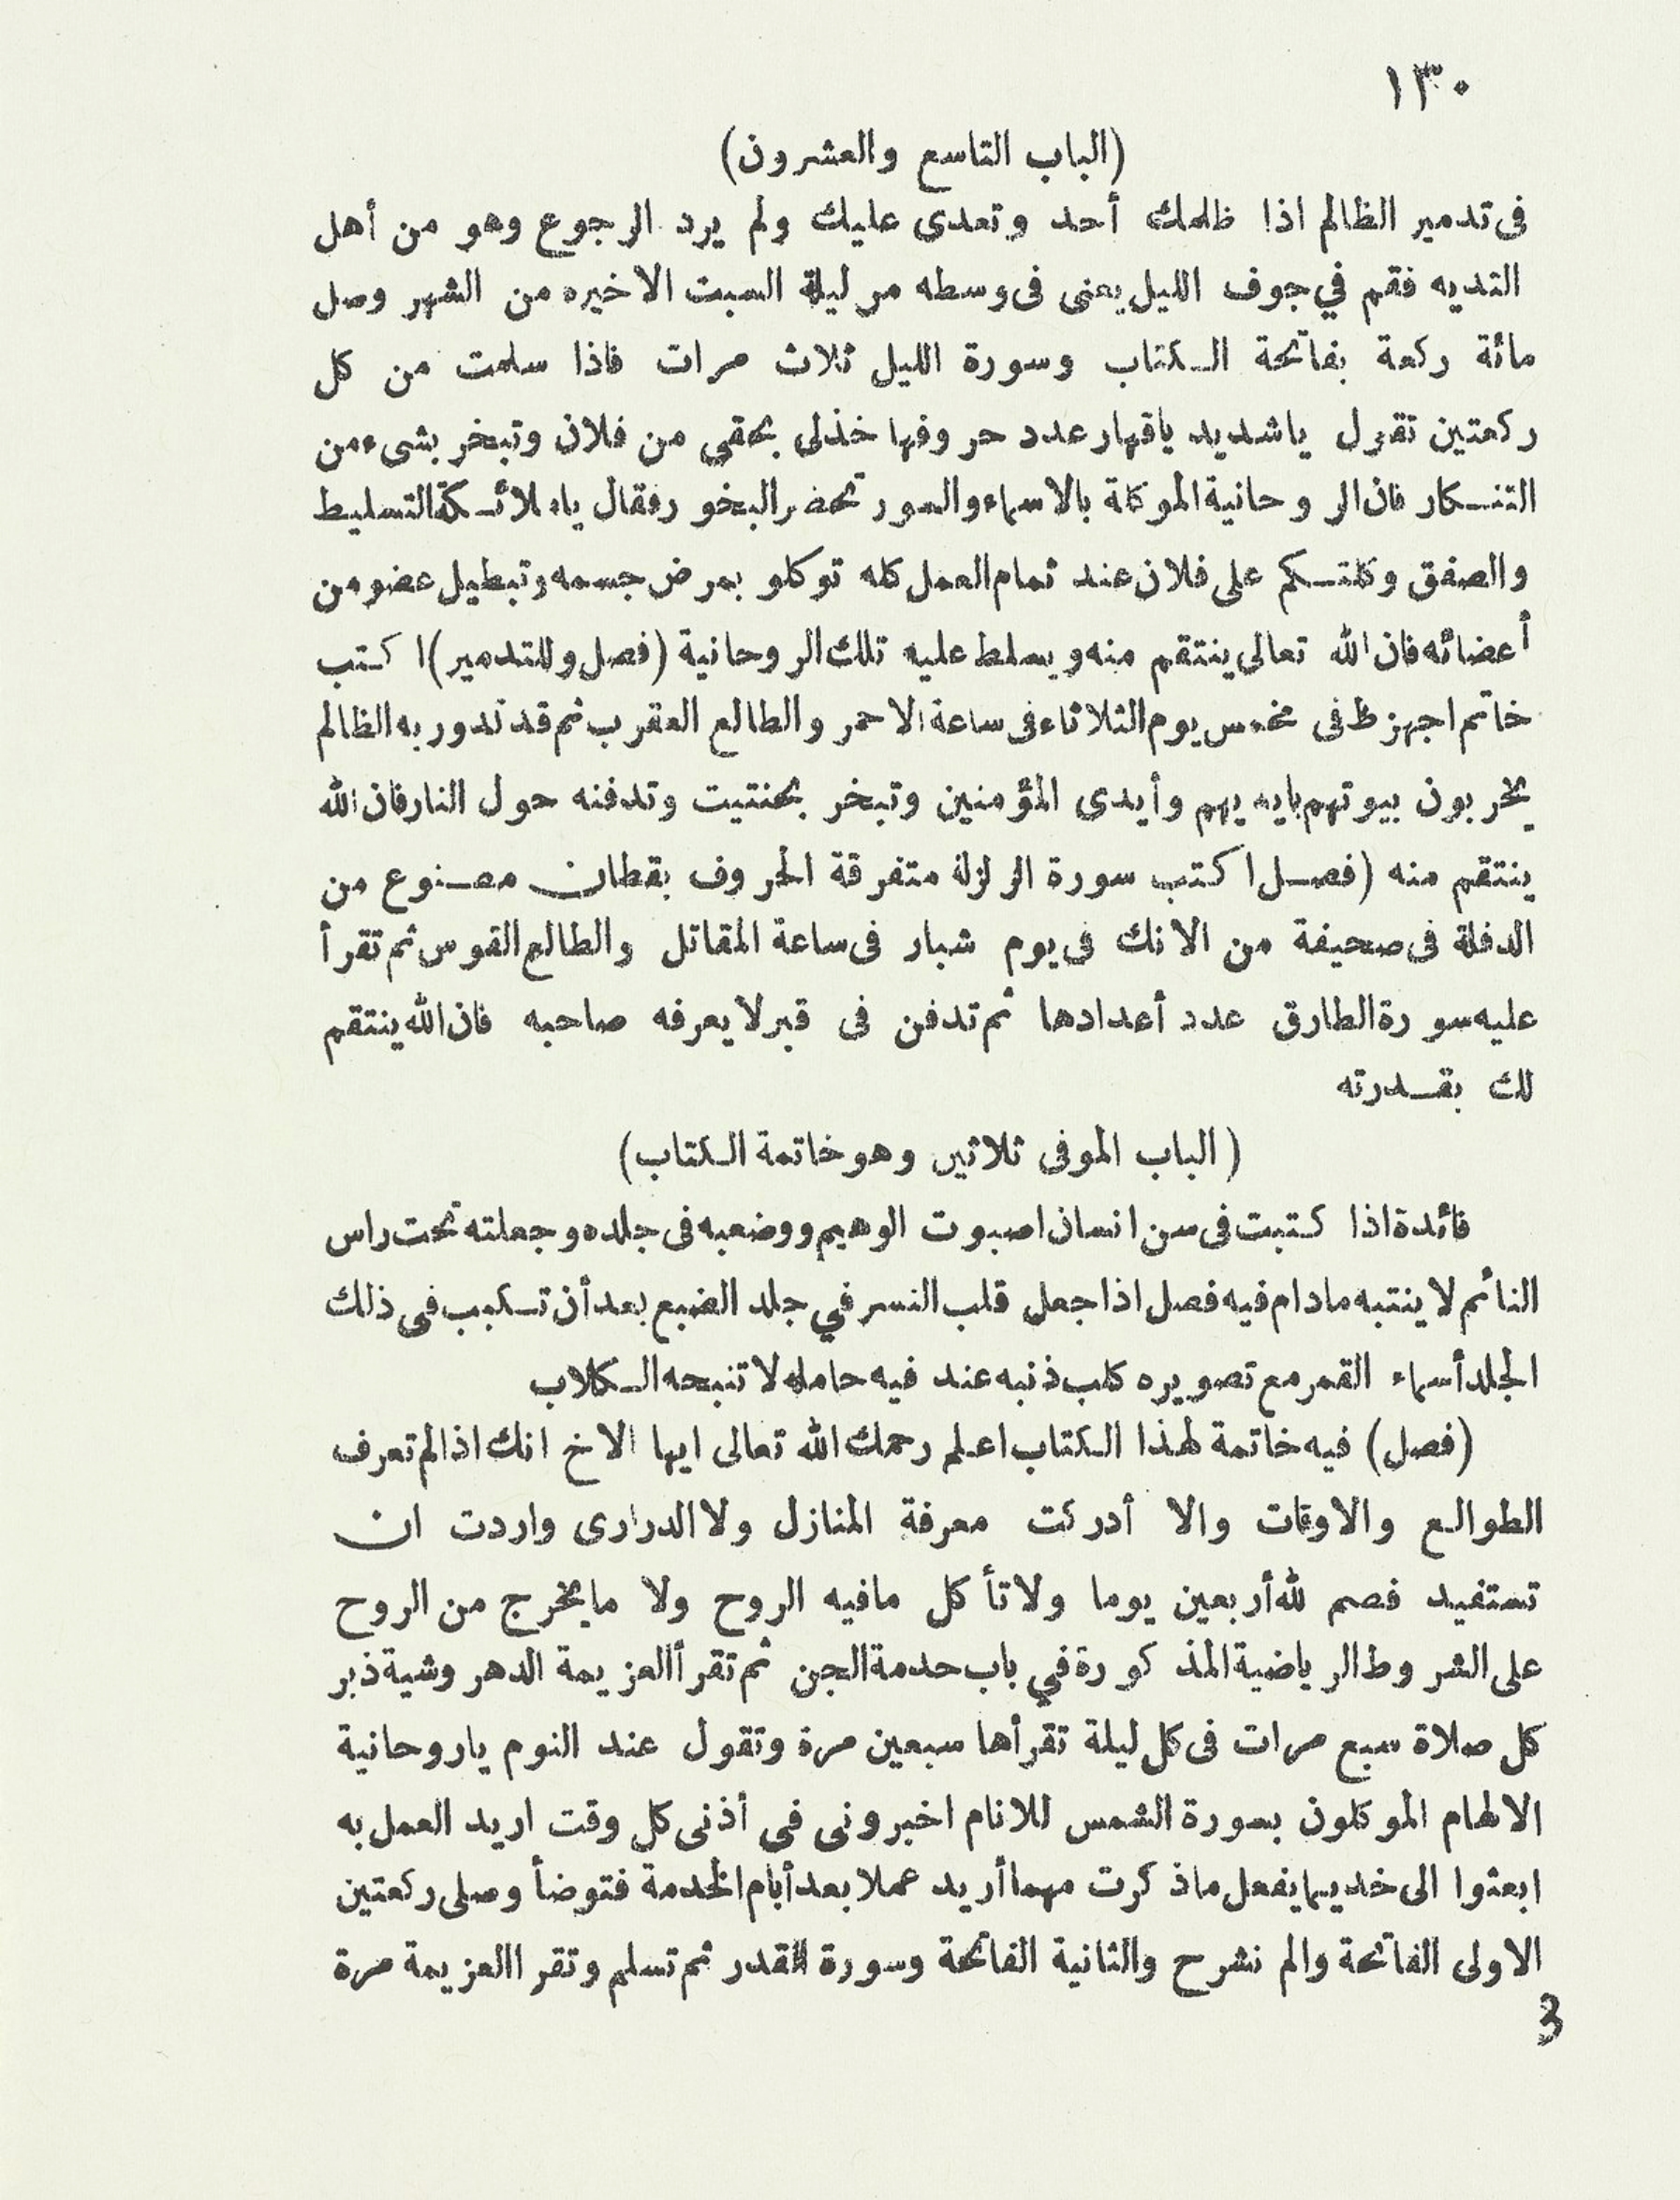 ١٣٠
(الباب التاسع والعشرون)
فى تدمير الظالم اذا ظلمك أحد وتعدى عليك ولم يرد الرجوع وهو من أهل
التديه فقم في جوف الليل يعنى فى وسطه من ليلة السبت الاخيره من الشهر وصل
مائة ركعة بفاتحة الكتاب وسورة الليل ثلاث مرات فاذا سلمت من كل
ركعتين تقول ياشديد ياقهار عدد حروفها خذلى بحقى من فلان وتبخر بشىء من
التنكار فان الروحانية الموكلة بالاسماء والسور تحضر البخور فقال ياملائكة التسليط
والصفق وكلتكم على فلان عند تمام العمل كله توكلو بمرض جسمه وتبطيل عضو من
أعضائه فان الله تعالى ينتقم منه ويسلط عليه تلك الروحانية (فصل وللتدمير) اكتب
خاتم اجهزط فى مخمس يوم الثلاثاء فى ساعة الاحمر والطالع العقرب ثم قد تدور به الظالم
يخربون بيوتهم بايديهم وأيدى المؤمنين وتبخر بحنتيت وتدفنه حول النار فان الله
ينتقم منه (فصل اكتب سورة الزلزلة متفرقة الحروف بقطان مصنوع من
الدفلة فى صحيفة من الانك فى يوم شبار فى ساعة المقاتل والطالع القوس ثم تقرأ
عليه سورة الطارق عدد أعدادها ثم تدفن فى قبر لا يعرفه صاحبه فان الله ينتقم
لك بقدرته
(الباب الموفى ثلاثين وهو خاتمة الكتاب)
فائدة اذا كتبت فى سن انسان اصبوت الوهيم ووضعبه فى جلده وجعلته تحت راس
النائم لا ينتبه مادام فيه فصل اذا جعل قلب النسر في جلد الضبع بعد أن تكبب فى ذلك
الجلد أسماء القمر مع تصويره كلب ذنبه عند فيه حامله لا تنبحه الكلاب
(فصل) فيه خاتمة لهذا الكتاب اعلم رحمك الله تعالى ايها الاخ انك اذا لم تعرف
الطوالع والاوقات والا أدركت معرفة المنازل ولا الدرارى واردت ان
تستفيد فصم لله أربعين يوما ولا تأكل مافيه الروح ولا مايخرج من الروح
على الشروط الرياضية المذكورة في باب خدمة الجن ثم تقرأ العزيمة الدهر وشية ذبر
كل صلاة سبع مرات فى كل ليلة تقرأها سبعين مرة وتقول عند النوم ياروحانية
الالهام الموكلون بسورة الشمس للانام اخبرونى فى أذنى كل وقت اريد العمل به
ابعثوا الى خديما يفعل ماذكرت مهما أريد عملا بعد أيام الخدمة فتوضأ وصلى ركعتين
الاولى الفاتحة والم نشرح والثانية الفاتحة وسورة القدر ثم تسلم وتقرا العزيمة مرة
3